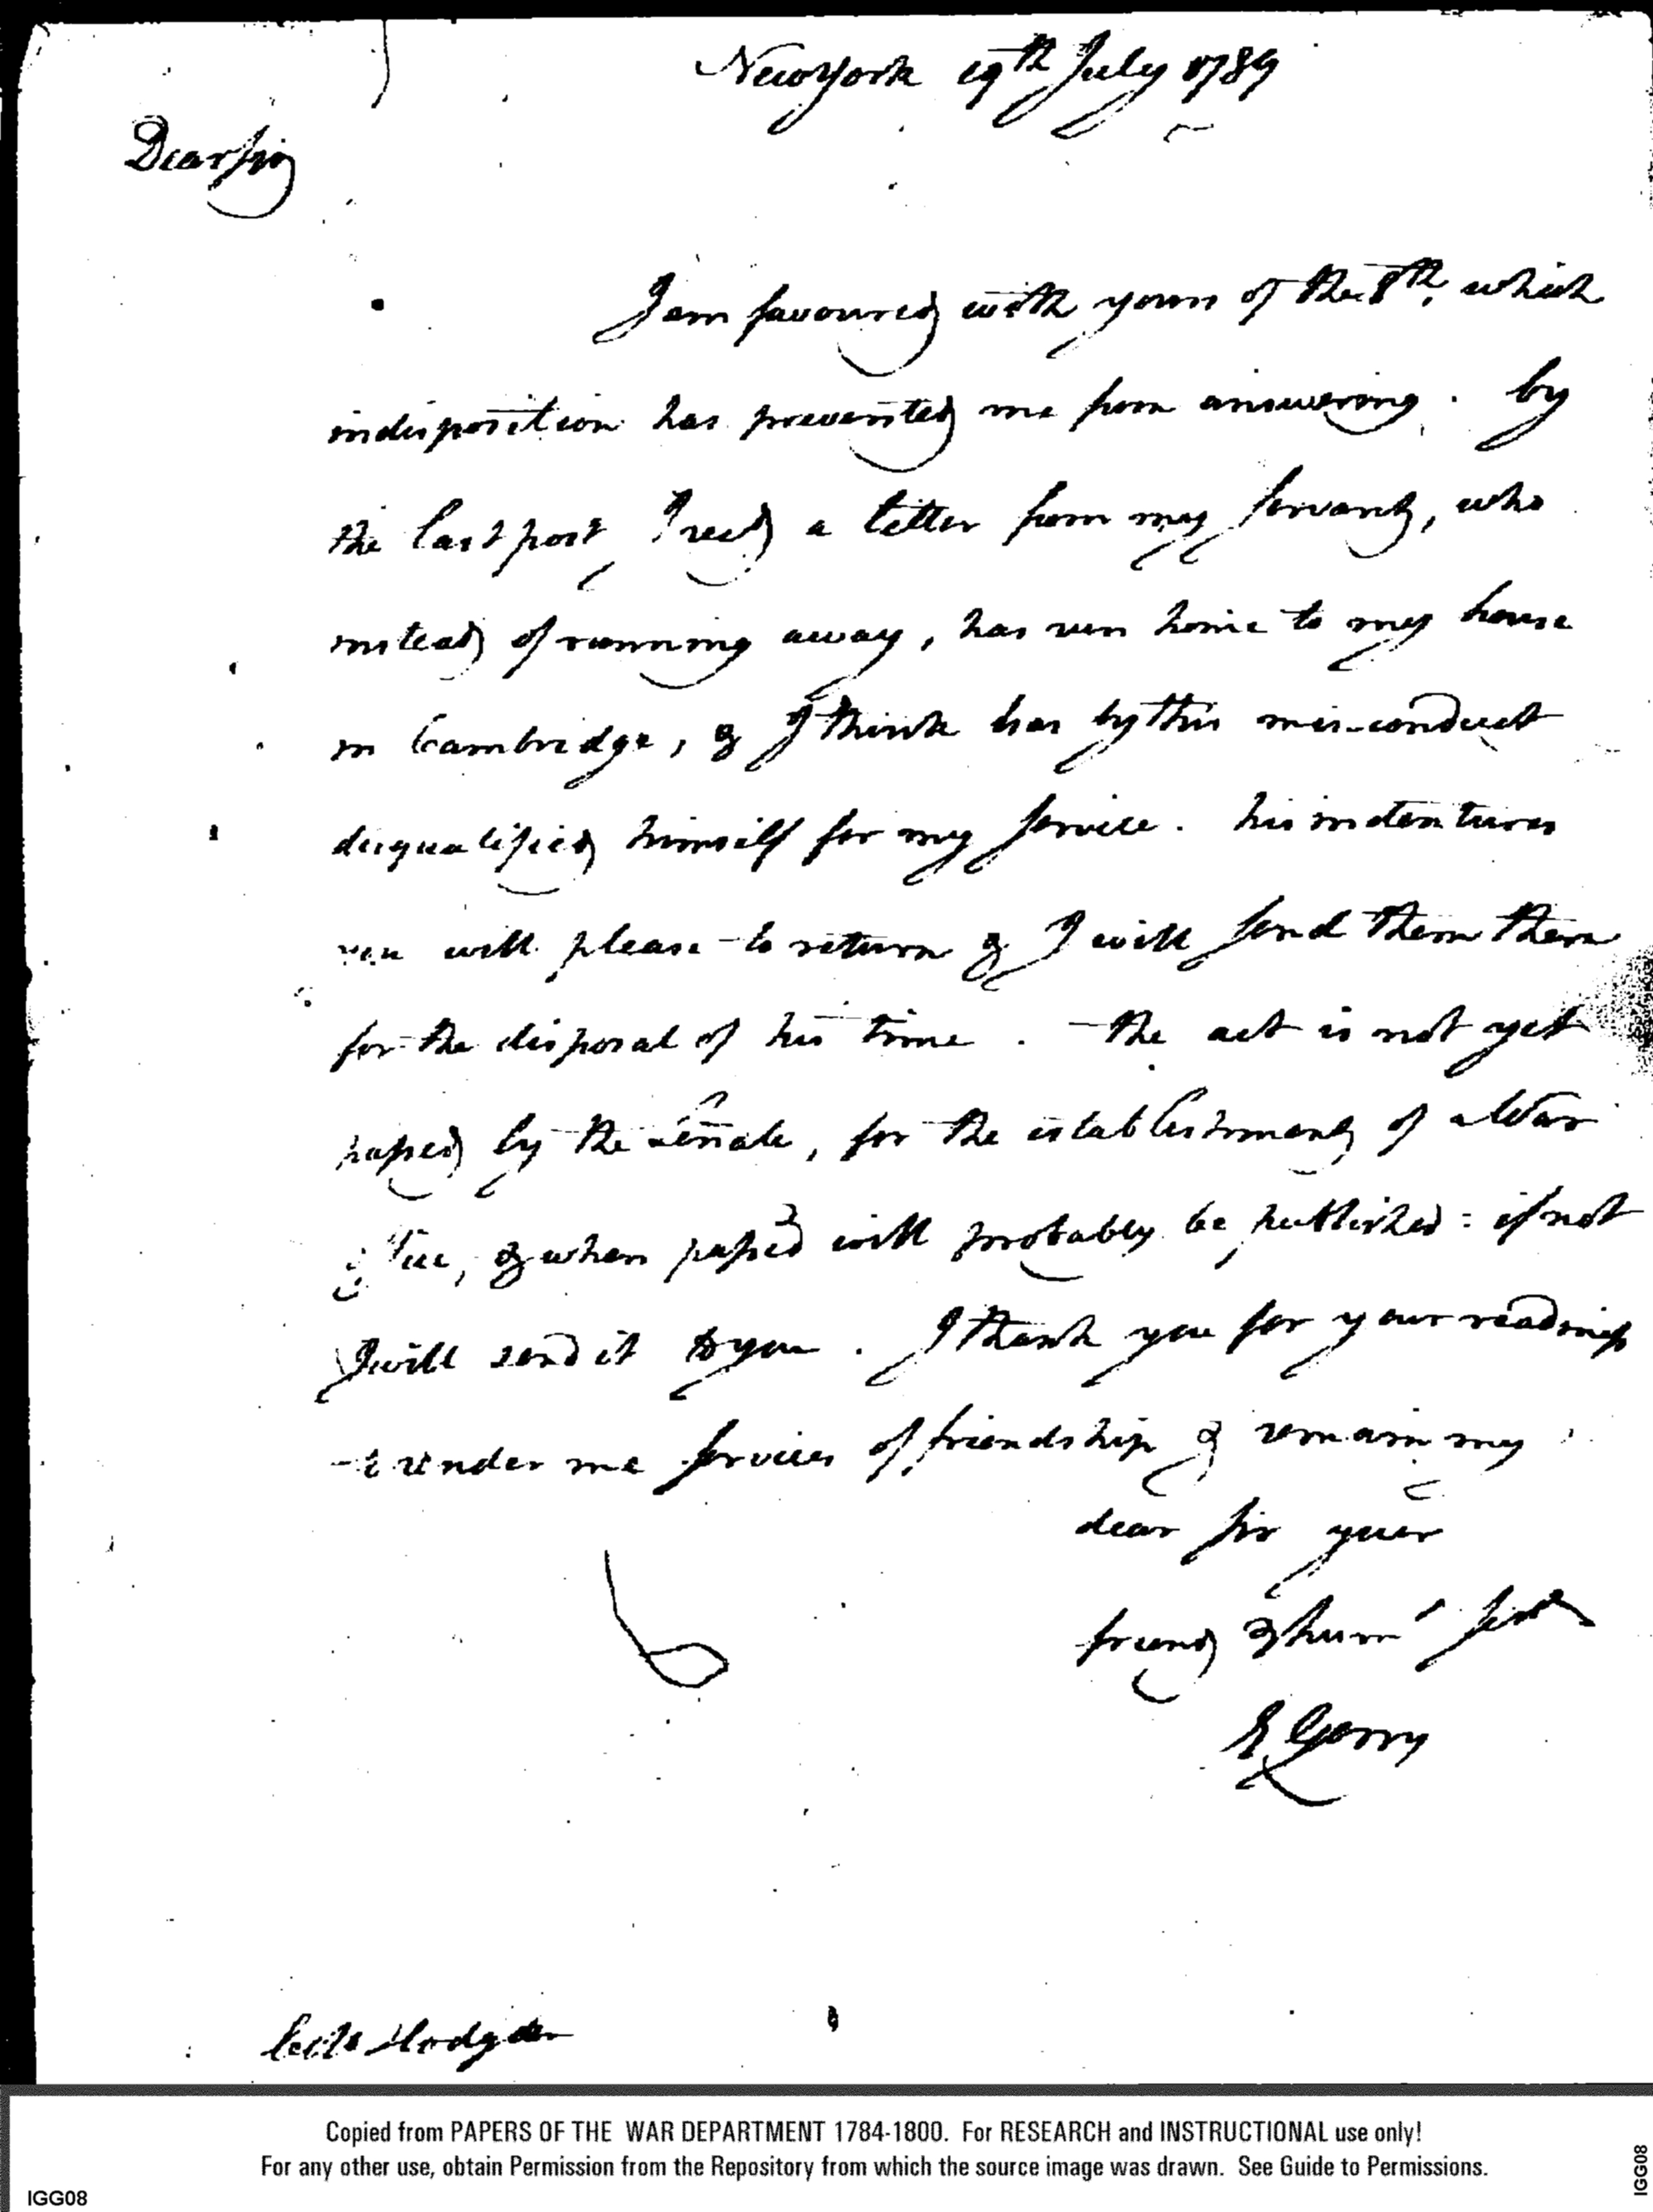 New York 19th July 1789
Dear sir
I am favoured with yours of the 8th, which
indisposition has prevented me from answering. by
the last post, I recd a letter from my servant, who
instead of running away, has run home to my house
in Cambridge, & I think has by this mis-conduct
disqualified himself for my service. his indentures
you will please to return & I will send them there
for the disposal of his time. the act is not yet
passed by the Senate, for the establishment of a War
office, & when passed will probably be published: if not
I will send it to you. I thank you for your readiness
to render me services of friendship & remain my
dear sir your
friend & hum
E Gerry
Colo Hodgdon
Copied from PAPERS OF THE WAR DEPARTMENT 1784-1800. For RESEARCH and INSTRUCTIONAL use only!
For any other use, obtain Permission from the Repository from which the source image was drawn. See Guide to Permissions.
IGG08
IGG08